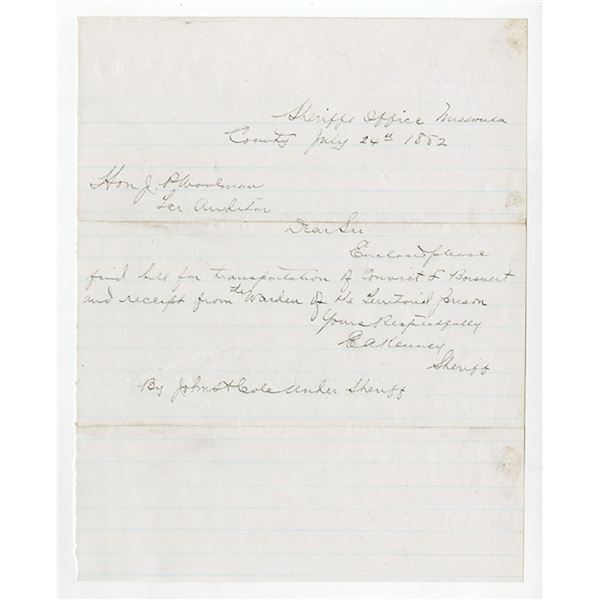 Sheriffs Office Missoula
County July 24th 1882
Hon J. P Woolman
Ter Auditor
Dear Sir
Enclosed please
find bill for transportation of Convict L Boisvert
and receipt from the Warden of the Territorial prison
Yours Respectfully
E A Kenney
Sheriff
By John S H Cole Under Sheriff